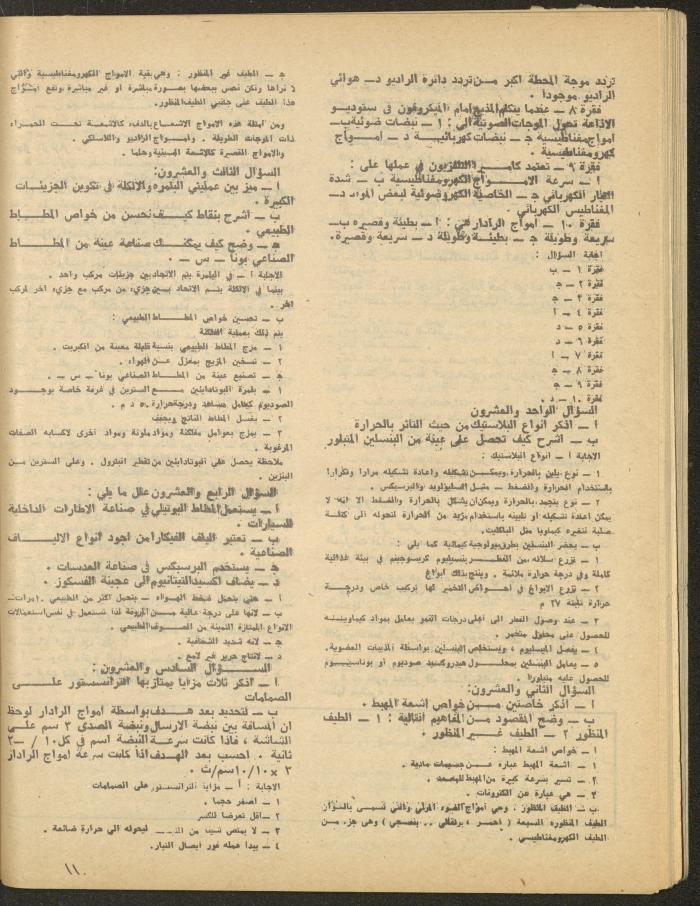 تردد موجة المحطة اكبر من تردد دائرة الراديو د ـ هوائي
الراديو موجودا .
فقرة ٨ ـ عندما يتكلم المذيع امام الميكروفون في ستوديو
الاذاعة تحول الموجات الصوتية الى : ١ ـ نبضات ضوئية ب ـ
امواج مغناطيسية ج ـ نبضات كهربائية د ـ امواج
كهرومغناطيسية .
فقرة ٩ ـ تعتمد كامرا التلفزيون في عملها على :
أ ـ سرعة الامواج الكهرومغناطيسية ب ـ شدة
التيار الكهربائي ج ـ الخاصية الكهروضوئية لبعض المواد د ـ
المغناطيس الكهربائي .
فقرة ١٠ ـ امواج الرادار هي : ا ـ بطيئة وقصيره ب ـ
سريعة وطويلة ج ـ بطيئة وطويلة د ـ سريعة وقصيرة.
اجابة السؤال :
فقرة ١ ـ ب
فقرة ٢ ـ ج
فقرة ٣ ـ ج
فقرة ٤ ـ ا
فقرة ٥ ـ د
فقرة ٦ ـ د
فقرة ٧ ـ ا
فقرة ٨ ـ ج
فقرة ٩ ـ ج
فقرة ١٠ ـ د .
السؤال الواحد والعشرون
أ ـ اذكر انواع البلاستيك من حيث التأثر بالحرارة
ب ـ اشرح كيف تحصل على عينة من البنسلين المتبلور
الاجابة أ ـ انواع البلاستيك :
١ ـ نوع يلين بالحرارة ويمكن تشكيله واعادة تشكيله مرارا وتكرارا
باستخدام الحرارة والضغط ـ مثل السليلويد والبرسبكس .
٢ ـ نوع يتجمد بالحرارة ويمكن ان يشكل بالحرارة والضغط الا انه لا
يمكن اعادة تشكيله او تليينه باستخدام مزيد من الحرارة لتحوله الى كتلة
صلبة متغيره كيماويا مثل الباكليت.
ب ـ يحضر البنسلين بطرق بيولوجية كيمائية كما يلي :
١ ـ تزرع سلاله من الفطر بنسيليوم كريسوجينم في بيئة غذائية
كاملة وفي درجة حرارة ملائمة . وينتج بذلك ابواغ
٢ ـ تزرع الابواغ في احواض التخمير لها تركيب خاص ودرجة
حرارة ثابتة ٢٧ م
٣ ـ عند وصول الفطر الى اعلى درجات النمو يعامل بمواد كيماويبه
للحصول على محلول متخمر .
٤ ـ يفصل المسيليوم ، ويستخلص البنسلين بواسطة المذيبات العضوية.
٥ ـ يعامل البنسلين بمحلول هيدروكسيد صوديوم أو بوتاسيوم
للحصول عليه متبلورا.
السؤال الثاني والعشرون:
أ ـ اذكر خاصتين من خواص اشعة المهبط .
ب ـ وضح المقصود من المفاهيم التالية : ١ ـ الطيف
المنظور ٢ ـ الطيف غير المنظور .
أ ـ خواص اشعة المهبط :
١ ـ اشعة المهبط عبارة عن جسيمات مادية .
٢ ـ تسير بسرعة كبيرة من المهبط للمصعد .
٣ ـ هي عبارة عن الكترونات .
ب ـ الطيف المنظور . وهي أمواج الضوء المرئي والتي تسمى بالوان
الطيف المنظوره السبعة ( احمر ، برتقالي .. بنفسجي ) وهي جزء من
الطيف الكهرومغناطيسي .
ج ـ الطيف غير المنظور : وهي بقية الامواج الكهرومغناطيسية والتي
لا نراها ولكن نحس ببعضها بصورة مباشرة او غير مباشرة وتقع امتواج
هذا الطيف على جانبي الطيف المنظور.
ومن امثلة هذه الامواج الاشعاع بالدفء كالاشعة تحت الحمراء
ذات الموجات الطويلة . وامواج الراديو واللاسلكي .
والامواج القصيرة كالاشعة السينية وجاما .
السؤال الثالث والعشرون:
أ ـ ميز بين عمليتي البلمره والفلكلة في تكوين الجزيئات
الكبيرة .
ب ـ اشرح بنقاط كيف نحسن من خواص المطاط
الطبيعي .
ج ـ وضح كيف يمكنك صناعة عينة من المطاط
الصناعي بونا ـ س ـ .
الاجابة أ ـ في البلمرة يتم الاتحاد بين جزيئات مركب واحد .
بينما في الفلكلة يتم الاتحاد بين جزيء من مركب مع جزيء اخر لمركب
اخر .
ب ـ تحسين خواص المطاط الطبيعي :
يتم ذلك بعملية الفلكنة
١ ـ مزج المطاط الطبيعي بنسبة قليلة معينة من الكبريت .
٢ ـ تسخين المزيج بمعزل عن الهواء .
ج ـ تصنيع عينة من المطاط الصناعي بونا ـ س ـ .
١ ـ بلمرة البوتادايين مع السترين في غرفة خاصة بوجود
الصوديوم كعامل مساعد ودرجة حرارة ٥٠ م .
٢ ـ يغسل المطاط الناتج ويجفف
٣ ـ يمزج بعوامل مفلكنة ومواد ملونة ومواد اخرى لاكسابه الصفات
المرغوبة .
ملاحظة يحصل على البوتادايين من تقطير البترول . وعلى السترين من
البنزين .
السؤال الرابع والعشرون علل ما يلي :
أ ـ يستعمل المطاط البوتيلي في صناعة الاطارات الداخلية
للسيارات .
ب ـ تعتبر الياف الفيكارا من اجود انواع الالياف
الصناعية .
ج ـ يستخدم البرسبكس في صناعة العدسات .
د ـ يضاف اكسيد التيتانيوم الى عجينة الفسكوز .
ب ـ لانها على درجة عالية من المرونة لذا تستعمل في نفس استعمالات
الانواع الممتازة الثمينة من الصوف الطبيعي .
ج ـ لانه شديد الشفافية .
د ـ لانتاج حرير غير لامع .
السؤال السادس والعشرون :
أ ـ اذكر ثلاث مزايا يمتاز بها الترانسستور على
الصمامات
ب ـ لتحديد بعد هدف بواسطة امواج الرادار لوحظ
ان المسافة بين نبضة الارسال ونبضة الصدى ٣ سم على
الشاشة ، فاذا كانت سرعة النبضة ١سم في كل ١٠ / ـ ٣
ثانية . احسب بعد الهدف اذا كانت سرعة امواج الرادار
٣ × ١٠/١٠ سم/ث .
الاجابة : أ ـ مزايا الترانسستور على الصمامات
١ ـ اصغر حجما .
٢ ـ اقل تعرضا للكسر
٣ ـ لا يمتص شيئا من ليحوله الى حرارة ضائعة .
٤ ـ يبدأ عمله فور ايصال التيار.
١١.